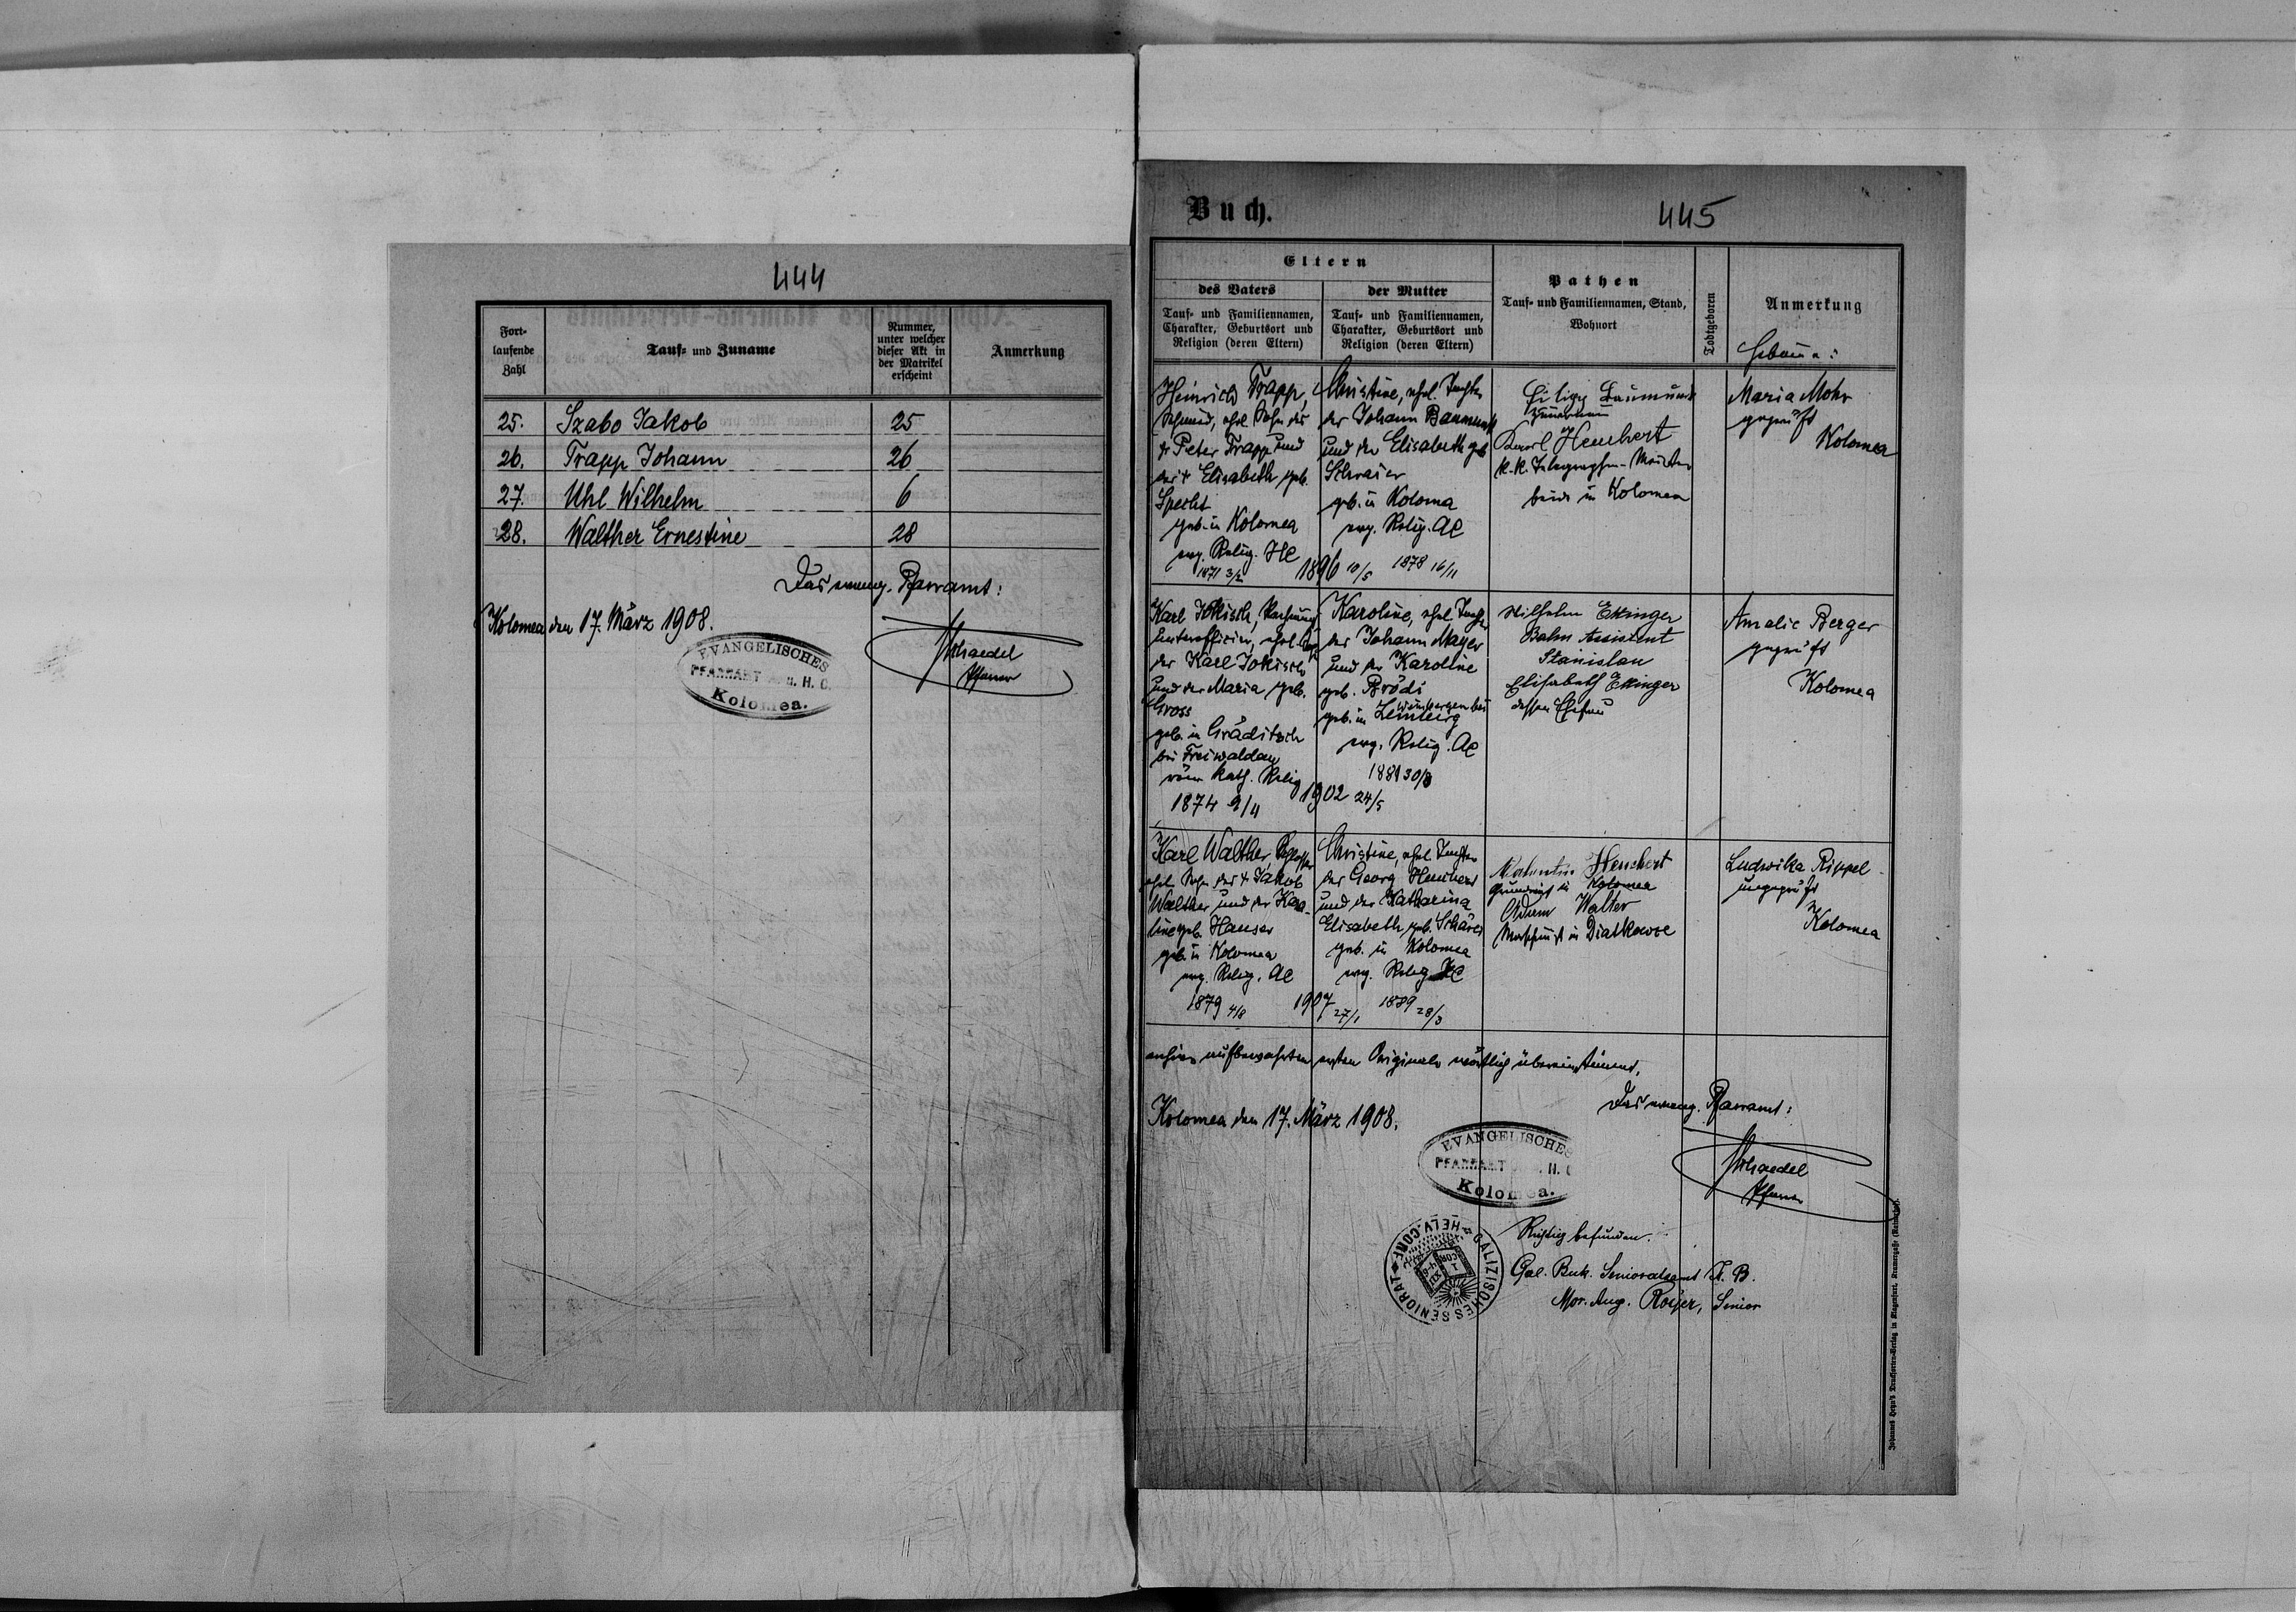 444
Fort-
laufende
Zahl
Tauf- und Zuname
Nummer,
unter welcher
dieser Akt in
der Matrikel
erscheint
Anmerkung
25. Szabo Jakob 25
26. Trapp Johann 26
27. Uhl Wilhelm 6
28. Walther Ernestine 28
Das evang. Pfarramt:
Kolomea den 17. März 1908.
EVANGELISCHES
PFARRAMT A. u. H. C.
Kolomea.
Schaedel
Pfarrer
Buch.
445
Eltern
des Vaters
Tauf- und Familiennamen,
Charakter, Geburtsort und
Religion (deren Eltern)
der Mutter
Tauf- und Familiennamen,
Charakter, Geburtsort und
Religion (deren Eltern)
Pathen
Tauf- und Familiennamen, Stand,
Wohnort
Todtgeboren
Anmerkung
Hebame:
Heinrich Trapp,
Schmied, ehel. Sohn des
† Peter Trapp und
der † Elisabeth geb.
Specht
geb. in Kolomea
evg. Relig. HC
1871 3/2
1896 10/5
Christine, ehel. Tochter
des Johann Baumunk
und der Elisabeth geb
Schraier
geb. in Kolomea
evg. Relig. AC
1878 16/11
Filipp Baumunk
Karl Heuchert
k.k. Telegraphen-Meister
beide in Kolomea
Maria Mohr
geprüft
Kolomea
Karl Jokisch, Rechnungs
Unterofficier, ehel. Sohn
des Karl Jokisch
und der Maria geb.
Gross
geb. in Gräditsch
bei Freiwaldau
röm. kath. Relig
1874 9/4
1902 24/5
Karoline, ehel. Tochter
des Johann Mayer
und der Karoline
geb. Brödi
geb. in Weinbergen bei
Lemberg
evg. Relig. AC
1881 30/8
Wilhelm Ettinger
Bahn Assistent
Stanislau
Elisabeth Ettinger
dessen Ehefrau
Amalie Berger
geprüft
Kolomea
Karl Walther, Schlosser
ehel. Sohn des † Jakob
Walther und der Karo-
line geb. Hauser
geb. in Kolomea
evg. Relig. AC
1879 4/8
1907 27/1
Christine, ehel. Tochter
des Georg Heuchert
und der Katharina
Elisabeth, geb. Schärer
geb. in Kolomea
evg. Relig. HC
1889 28/3
Valentin Heuchert
Grundwirt in Kolomea
Adam Walter
Maschinist in Diatkowce
Ludwika Rippel
ungeprüft
Kolomea
aufbewahrten ersten Originale wörtlich übereinstimmt.
Das evang. Pfarramt:
Kolomea den 17. März 1908.
EVANGELISCHES
PFARRAMT H. C
Kolomea.
Schaedel
Pfarrer
GALIZISCHES SENIORAT HELV. CONF.
Richtig befunden.
Gal. Buk. Senioratsamt H. B.
Mor. Aug. Royer, Senior
Johannes Heyn's Drucksorten-Verlag in Klagenfurt, Kramergasse